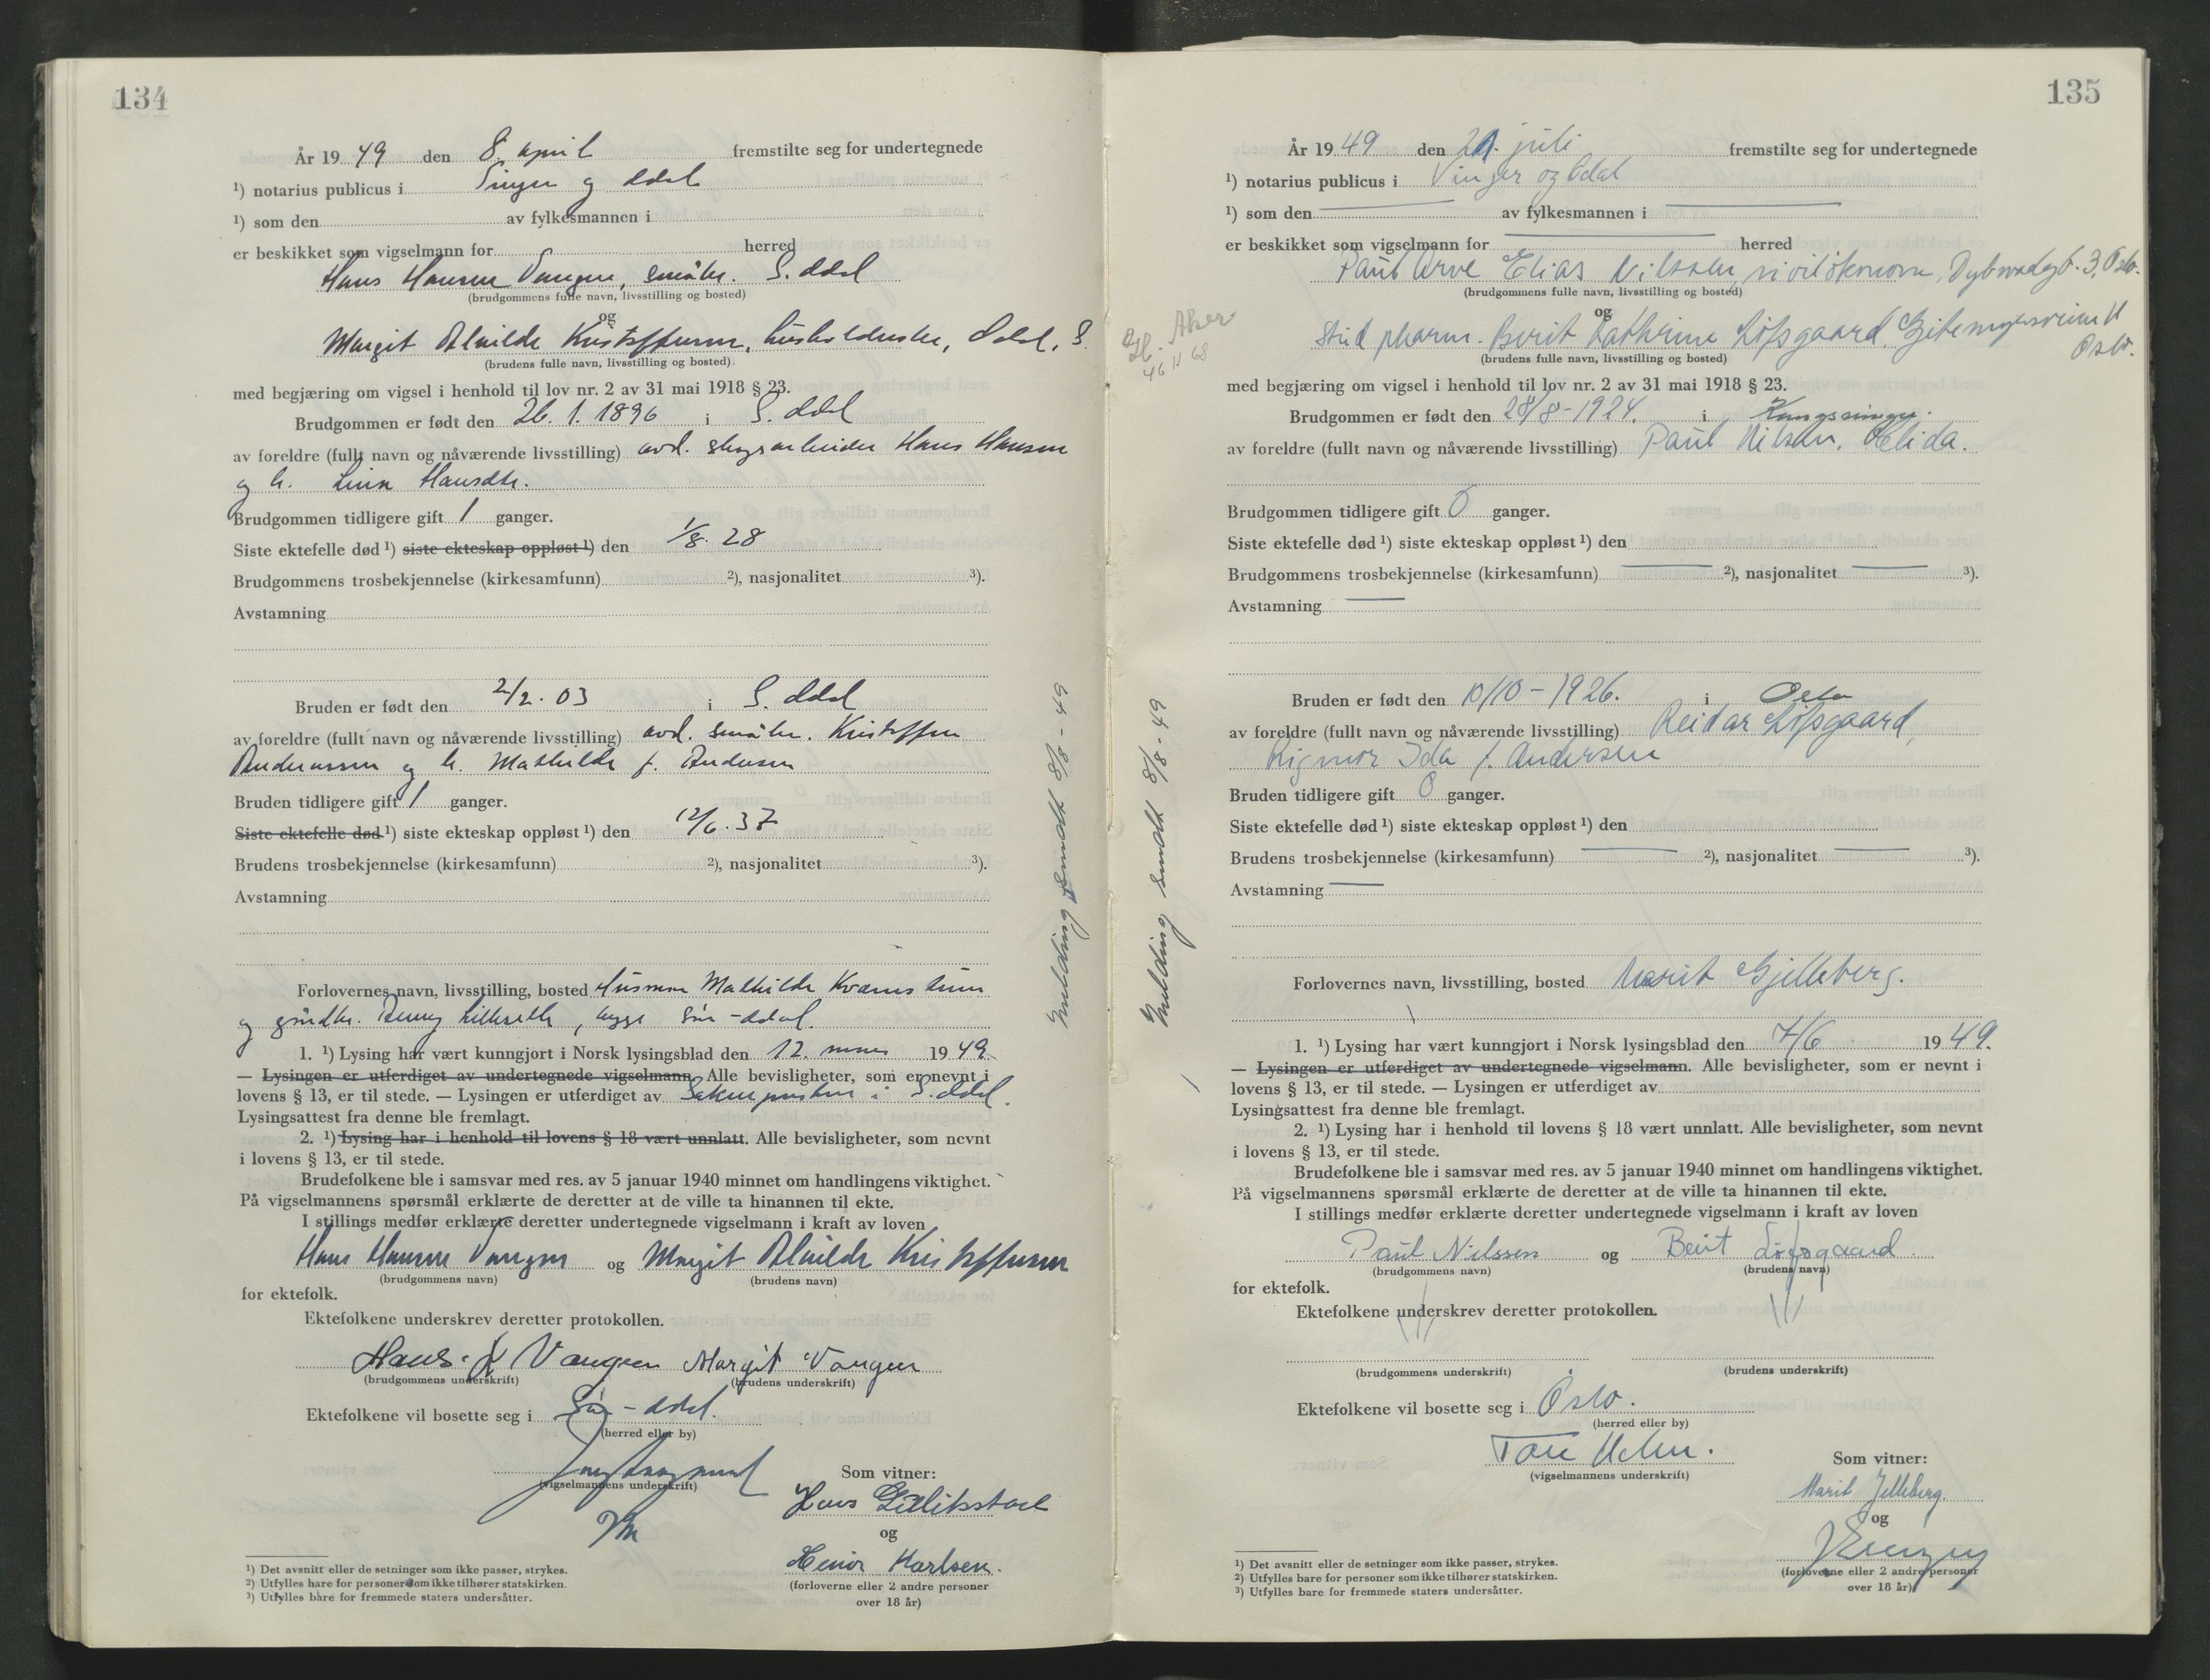 134
År 19 49 den 8. april fremstilte seg for undertegnede
¹) notarius publicus i Vinger og Odal
¹) som den av fylkesmannen i
er beskikket som vigselmann for herred
Hans Hansen Vangen, småbr. S. Odal
(brudgommens fulle navn, livsstilling og bosted)
og
Margit Alvilde Kristoffersen, husholderske, Odal, S.
(brudens fulle navn, livsstilling og bosted).
med begjæring om vigsel i henhold til lov nr. 2 av 31 mai 1918 § 23.
Brudgommen er født den 26. 1. 1896 i S. Odal
av foreldre (fullt navn og nåværende livsstilling) avd. skogsarbeider Hans Hansen
og h. Lina Hansdtr.
Brudgommen tidligere gift 1 ganger.
Siste ektefelle død ¹) siste ekteskap oppløst ¹) den 1/8. 28
Brudgommens trosbekjennelse (kirkesamfunn) ²), nasjonalitet ³).
Avstamning
Bruden er født den 2/2. 03 i S. Odal
av foreldre (fullt navn og nåværende livsstilling) avd. småbr. Kristoffer
Anderssen og h. Mathilde f. Andersen
Bruden tidligere gift 1 ganger.
Siste ektefelle død ¹) siste ekteskap oppløst ¹) den 12/6. 37
Brudens trosbekjennelse (kirkesamfunn) ²), nasjonalitet ³).
Avstamning
Forlovernes navn, livsstilling, bosted Husmor Mathilde
og Sør-Odal.
1. ¹) Lysing har vært kunngjort i Norsk lysingsblad den 12. mars 19 49
— Lysingen er utferdiget av undertegnede vigselmann. Alle bevisligheter, som er nevnt i
lovens § 13, er til stede. — Lysingen er utferdiget av Soknepresten i S. Odal.
Lysingsattest fra denne ble fremlagt.
2. ¹) Lysing har i henhold til lovens § 18 vært unnlatt. Alle bevisligheter, som nevnt
i lovens § 13, er til stede.
Brudefolkene ble i samsvar med res. av 5 januar 1940 minnet om handlingens viktighet.
På vigselmannens spørsmål erklærte de deretter at de ville ta hinannen til ekte.
I stillings medfør erklærte deretter undertegnede vigselmann i kraft av loven
Hans Hansen Vangen og Margit Alvilde Kristoffersen
(brudgommens navn) (brudens navn)
for ektefolk.
Ektefolkene underskrev deretter protokollen.
Hans H Vangen Margit Vangen
(brudgommens underskrift) (brudens underskrift)
Ektefolkene vil bosette seg i Sør-Odal.
(herred eller by)
(vigselmannens underskrift)
Som vitner:
Hans
og
Henór Karlsen.
(forloverne eller 2 andre personer
over 18 år)
¹) Det avsnitt eller de setninger som ikke passer, strykes.
²) Utfylles bare for personer som ikke tilhører statskirken.
³) Utfylles bare for fremmede staters undersåtter.
Melding sendt 8/8 - 49
135
År 19 49 den 21. juli fremstilte seg for undertegnede
¹) notarius publicus i Vinger og Odal
¹) som den av fylkesmannen i
er beskikket som vigselmann for herred
Paul Arve Elias Nilssen, siviløkonom, Dybwadsgt. 3, Oslo.
(brudgommens fulle navn, livsstilling og bosted)
og
Stud pharm. Berit Kathrine Løfsgaard, Gjetemyrsveien 11
Oslo.
(brudens fulle navn, livsstilling og bosted)
Aker
46 11 68
med begjæring om vigsel i henhold til lov nr. 2 av 31 mai 1918 § 23.
Brudgommen er født den 28/8 - 1924. i Kongsvinger.
av foreldre (fullt navn og nåværende livsstilling) Paul Nilsen, Elida.
Brudgommen tidligere gift 0 ganger.
Siste ektefelle død ¹) siste ekteskap oppløst ¹) den
Brudgommens trosbekjennelse (kirkesamfunn) ²), nasjonalitet ³).
Avstamning
Bruden er født den 10/10 - 1926. i Oslo
av foreldre (fullt navn og nåværende livsstilling) Reidar Løfsgaard,
Rigmor Ida f. Andersen
Bruden tidligere gift 0 ganger.
Siste ektefelle død ¹) siste ekteskap oppløst ¹) den
Brudens trosbekjennelse (kirkesamfunn) ²), nasjonalitet ³).
Avstamning
Forlovernes navn, livsstilling, bosted Marit Gjelleberg.
1. ¹) Lysing har vært kunngjort i Norsk lysingsblad den 7/6 19 49.
— Lysingen er utferdiget av undertegnede vigselmann. Alle bevisligheter, som er nevnt i
lovens § 13, er til stede. — Lysingen er utferdiget av
Lysingsattest fra denne ble fremlagt.
2. ¹) Lysing har i henhold til lovens § 18 vært unnlatt. Alle bevisligheter, som nevnt
i lovens § 13, er til stede.
Brudefolkene ble i samsvar med res. av 5 januar 1940 minnet om handlingens viktighet.
På vigselmannens spørsmål erklærte de deretter at de ville ta hinannen til ekte.
I stillings medfør erklærte deretter undertegnede vigselmann i kraft av loven
Paul Nilssen og Berit Løfsgaard.
(brudgommens navn) (brudens navn)
for ektefolk.
Ektefolkene underskrev deretter protokollen.
(brudgommens underskrift) (brudens underskrift)
Ektefolkene vil bosette seg i Oslo.
(herred eller by)
(vigselmannens underskrift)
Som vitner:
Marit Jelleberg.
og
(forloverne eller 2 andre personer
over 18 år)
¹) Det avsnitt eller de setninger som ikke passer, strykes.
²) Utfylles bare for personer som ikke tilhører statskirken.
³) Utfylles bare for fremmede staters undersåtter.
Melding sendt 8/8 - 49